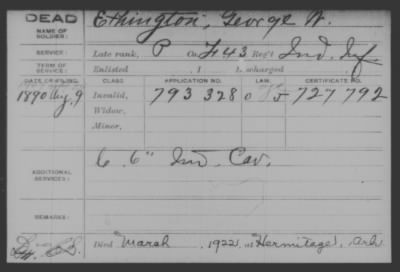 DEAD
NAME OF SOLDIER: Ethington, George W.
SERVICE: Late rank, P Co. F. 43 Reg't Ind. Inf.
TERM OF SERVICE: Enlisted , 1 charged , 1
CLASS. APPLICATION NO. LAW. CERTIFICATE NO.
1890 Aug. 9 Invalid, 793 328 727 792
Widow,
Minor,
ADDITIONAL SERVICES: C. 6" Ind. Cav.
REMARKS:
Died March , 1922, at Hermitage, Ark.